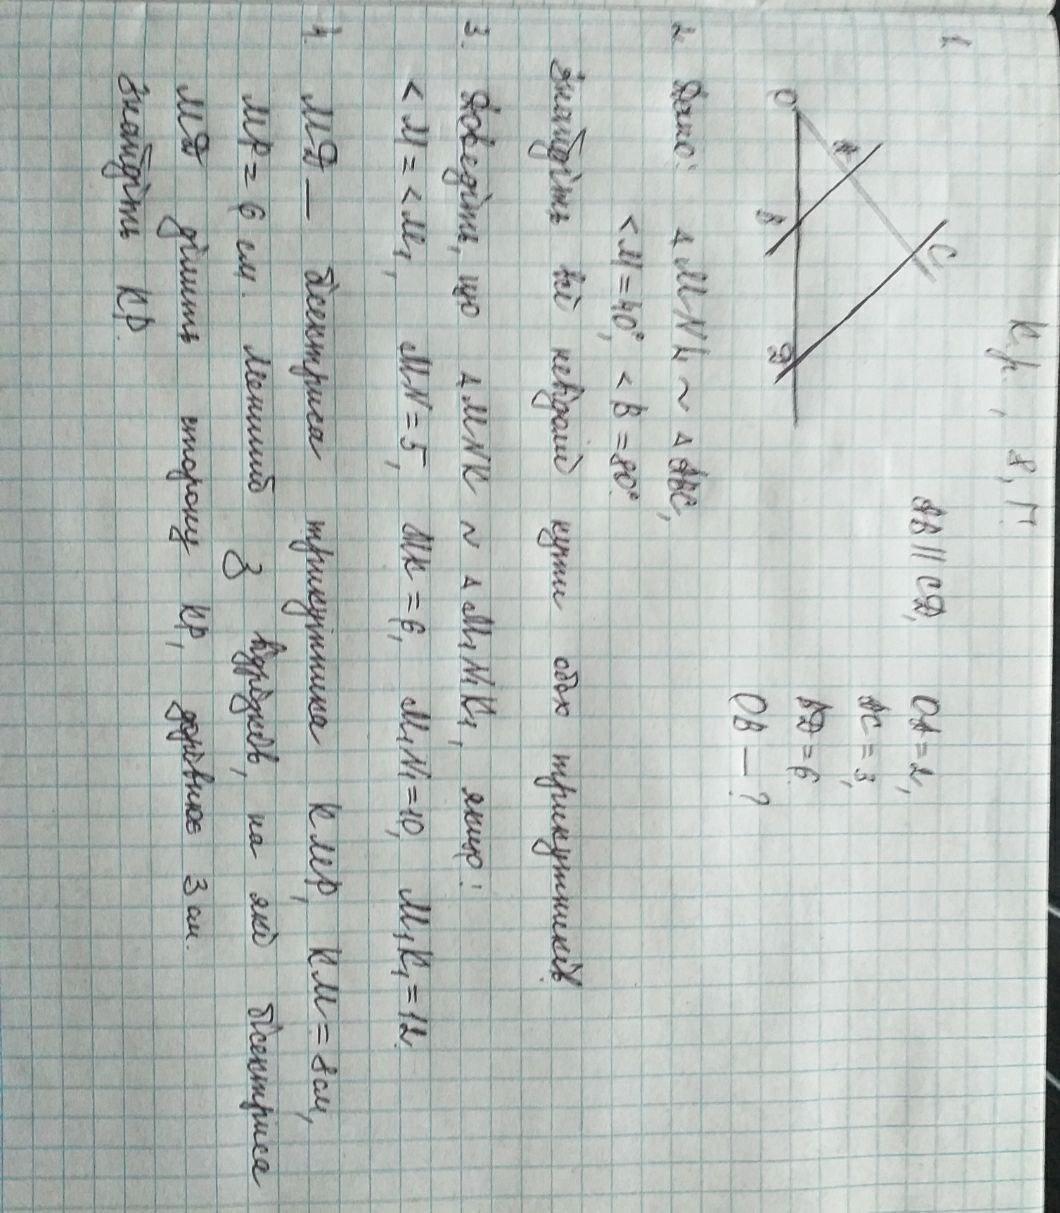 К.р., 8, Г
1
AB || CД, OA = 2,
AC = 3,
BД = 6
OB — ?
O
A
B
C
Д
2. Дано: ΔMNL ~ ΔABC,
<M = 40°, <B = 80°.
Знайдіть всі невідомі кути обох трикутників
3. Доведіть, що ΔMNK ~ ΔM₁N₁K₁, якщо:
<M = <M₁, MN = 5, MK = 6, M₁N₁ = 10, M₁K₁ = 12.
4. МД — бісектриса трикутника КМР, КМ = 8 см,
МР = 6 см. Менший з відрізків, на які бісектриса
МД ділить сторону КР, дорівнює 3 см.
Знайдіть КР.